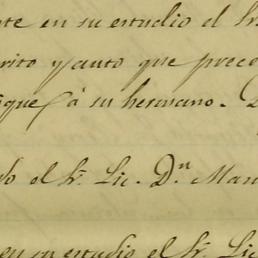 te en su estudio el Sr.
rito y auto que prece
que, á su hermano.
do el Sr. Lic. Dn. Man
en su estudio el Sr. Lic